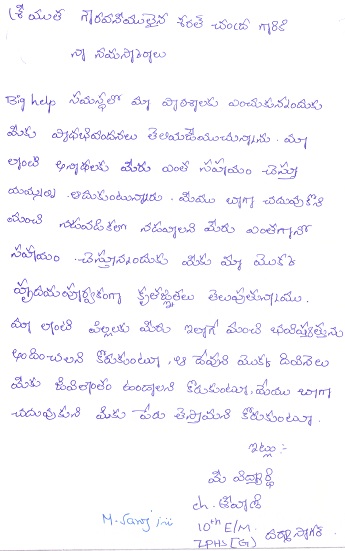 శ్రీ యుత గౌరవనీయులైన శరత్ చంద్ర గారికి
నా నమస్కారాలు
Big help సమస్థతో మా పాఠశాలకు ఎంచుకున్నందుకు
మీకు పాధభివందనలు తెలియజేయుచున్నాను. మా
లాంటి అనాథలకు మీరు ఎంత సహాయం చేస్తూ
మమ్మల్ని ఆదుకుంటున్నారు. మేము బాగా చదువుకొని
మంచి నడవడికలో నడవాలని మీరు ఎంతగానో
సహాయం చేస్తున్నందుకు మీకు మా యొక్క
హృదయపూర్వకంగా కృతజ్ఞతలు తెలుపుతున్నాము.
మా లాంటి పిల్లలకు మీరు ఇలాగే మంచి భవిష్యత్తును
అందించలని కోరుకుంటూ, ఆ దేవుని యొక్క దీవెనలు
మీకు జీవితాంతం ఉండాలని కోరుకుంటూ, మేము బాగా
చదువుకుని మీకు పేరు తెస్తామని కోరుకుంటూ.
ఇట్లు :-
మీ విద్యార్థి
ch.
M. Saroj
10th E/M.
ZPHS (G)